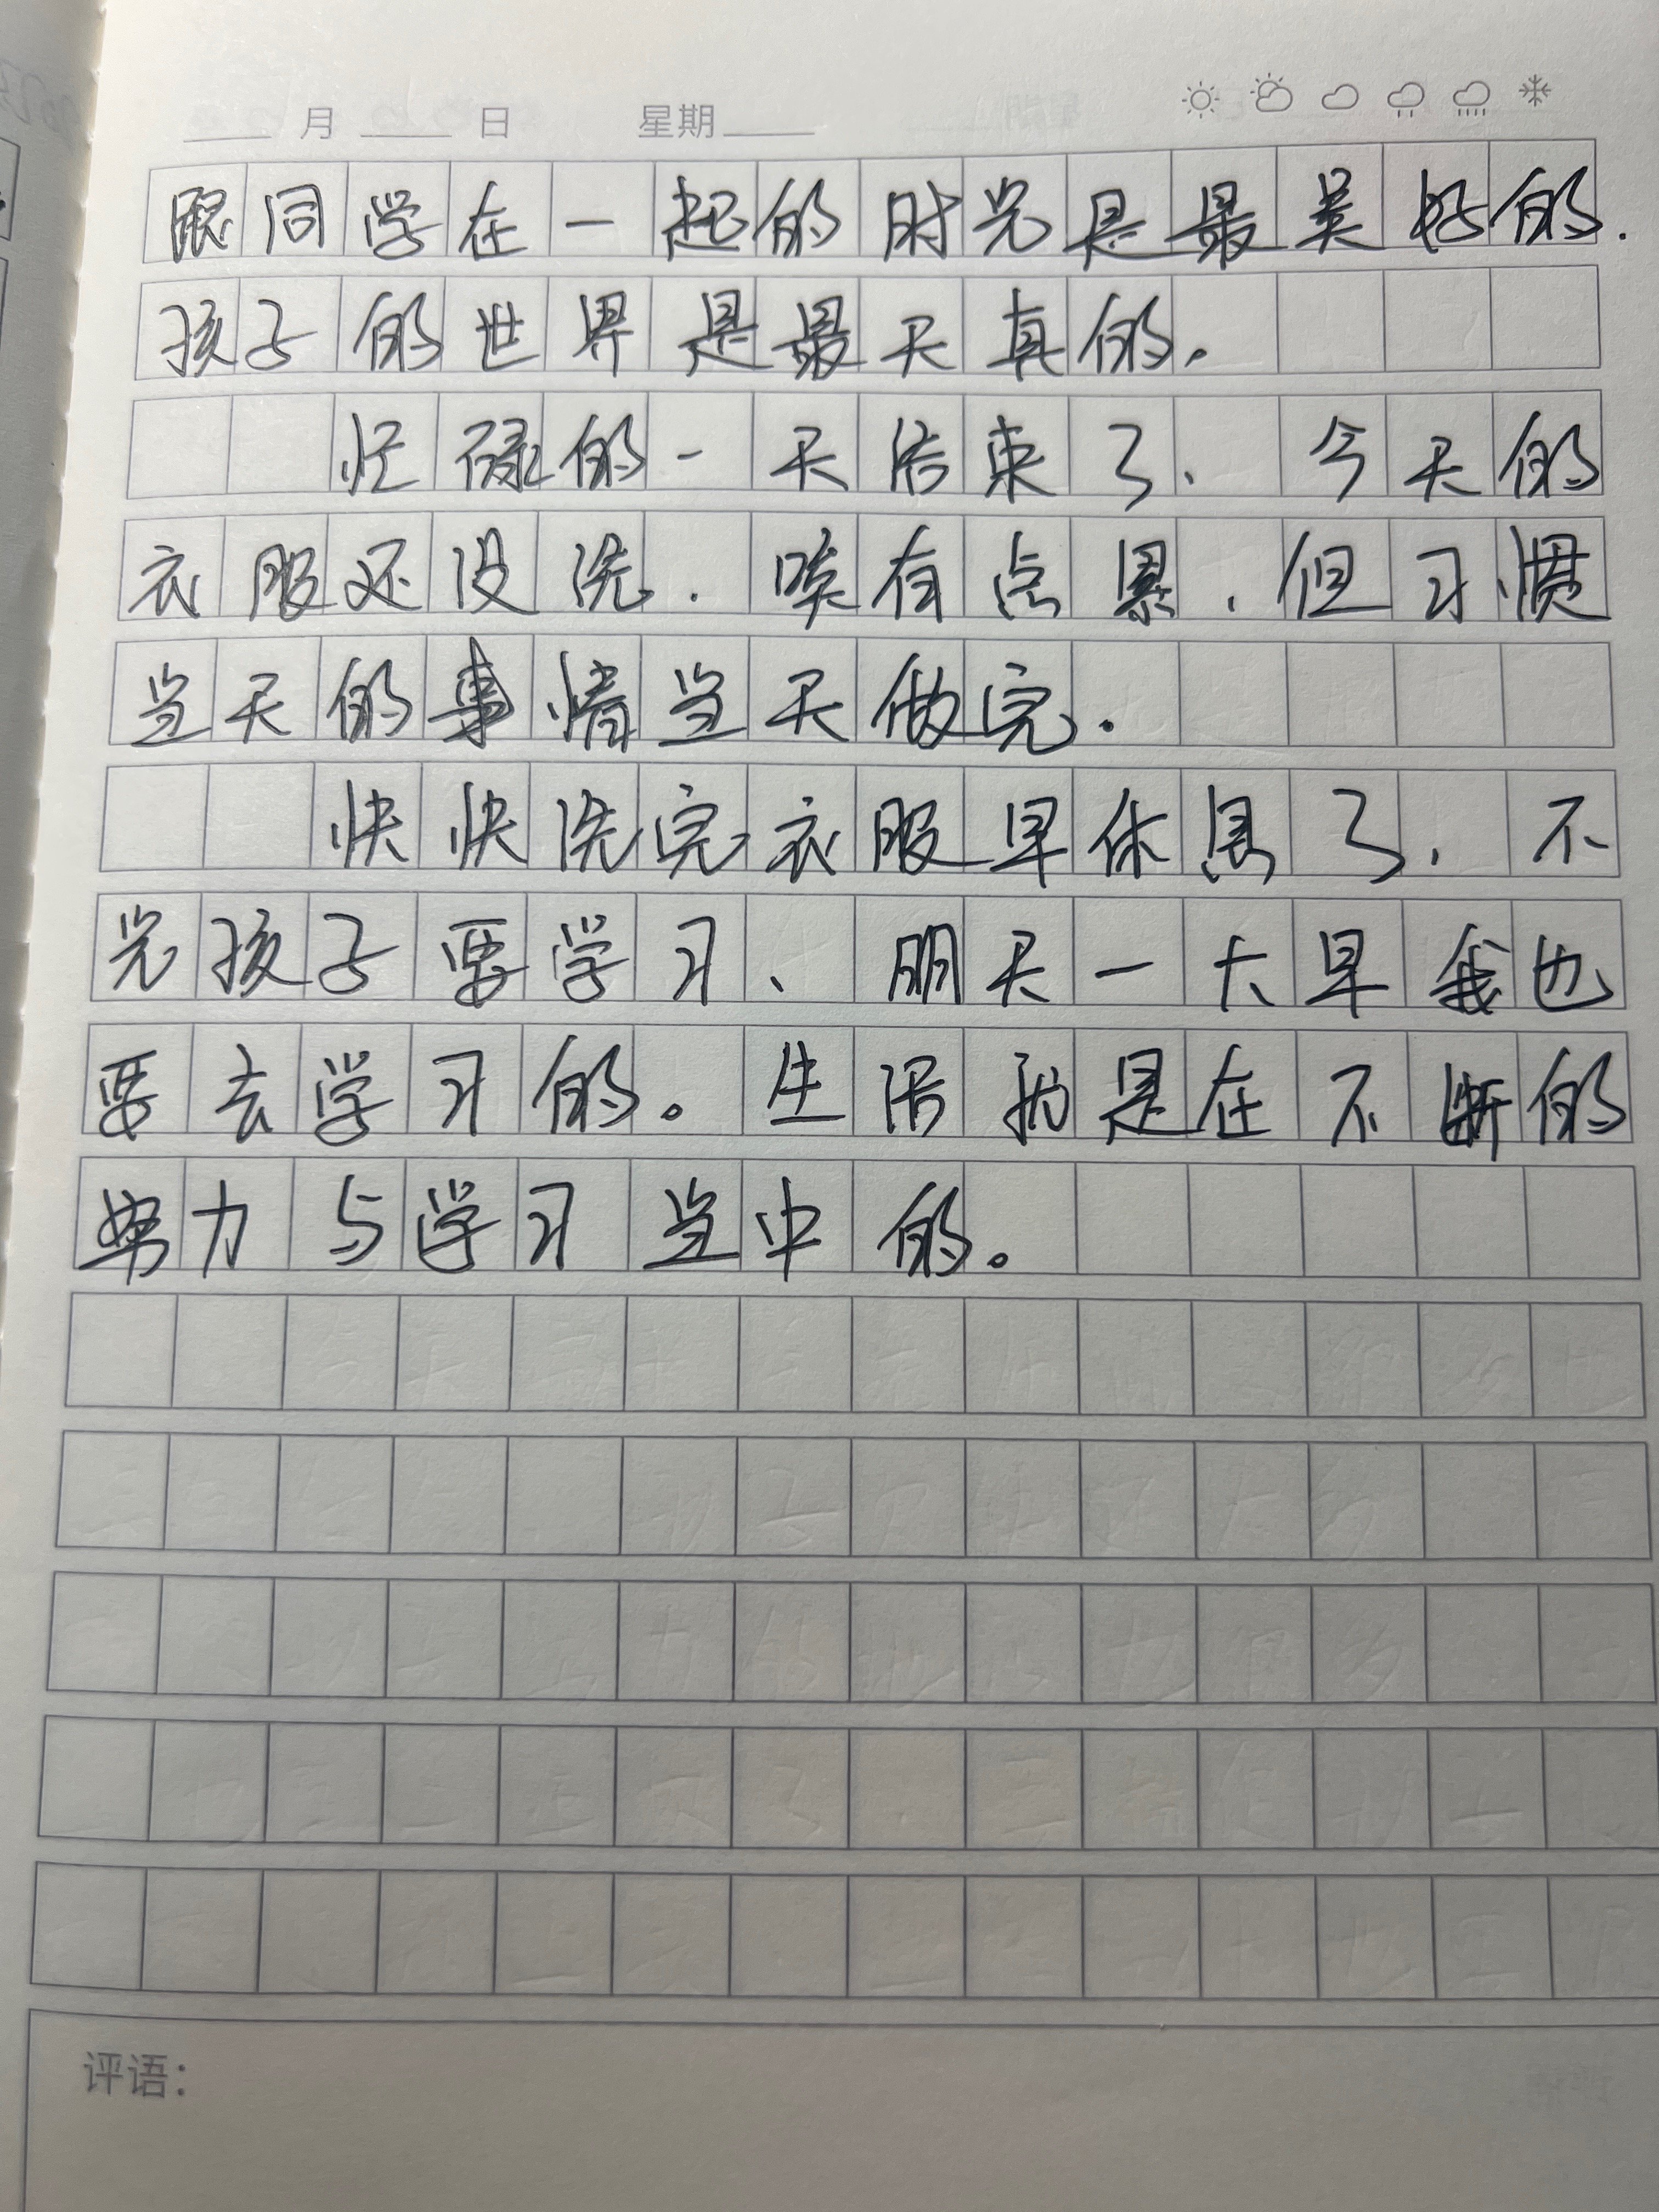 月 日 星期
跟同学在一起的时光是最美好的.
孩子的世界是最天真的.
忙碌的一天结束了、今天的
衣服还没洗.唉有点累.但习惯
当天的事情当天做完.
快快洗完衣服早休息了,不
光孩子要学习、明天一大早我也
要去学习的。生活就是在不断的
努力与学习当中的。
评语: